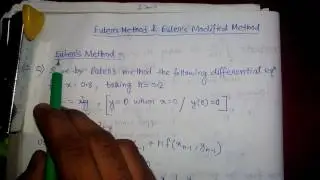 Euler's Method & Euler's Modified Method
Euler's Method :-
Q) by Euler's method the following differential eqn
x = 0.8, taking h = 0.2
= xy, [y=0 when x=0 / y(0)=0]
+ h f(xn-1, yn-1)